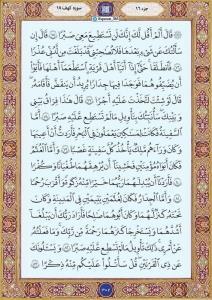 جزء ١٦
سوره كهف ١٨
قَالَ أَلَمْ أَقُل لَّكَ إِنَّكَ لَن تَسْتَطِيعَ مَعِيَ صَبْرًا ۝ قَالَ إِن
سَأَلْتُكَ عَن شَيْءٍ بَعْدَهَا فَلَا تُصَاحِبْنِي قَدْ بَلَغْتَ مِن لَّدُنِّي عُذْرًا
۝ فَانطَلَقَا حَتَّىٰ إِذَا أَتَيَا أَهْلَ قَرْيَةٍ اسْتَطْعَمَا أَهْلَهَا فَأَبَوْا
أَن يُضَيِّفُوهُمَا فَوَجَدَا فِيهَا جِدَارًا يُرِيدُ أَن يَنقَضَّ فَأَقَامَهُ
قَالَ لَوْ شِئْتَ لَتَّخَذْتَ عَلَيْهِ أَجْرًا ۝ قَالَ هَٰذَا فِرَاقُ بَيْنِي
وَبَيْنِكَ سَأُنَبِّئُكَ بِتَأْوِيلِ مَا لَمْ تَسْتَطِع عَّلَيْهِ صَبْرًا ۝ أَمَّا
السَّفِينَةُ فَكَانَتْ لِمَسَاكِينَ يَعْمَلُونَ فِي الْبَحْرِ فَأَرَدتُّ أَنْ أَعِيبَهَا
وَكَانَ وَرَاءَهُم مَّلِكٌ يَأْخُذُ كُلَّ سَفِينَةٍ غَصْبًا ۝ وَأَمَّا الْغُلَامُ
فَكَانَ أَبَوَاهُ مُؤْمِنَيْنِ فَخَشِينَا أَن يُرْهِقَهُمَا طُغْيَانًا وَكُفْرًا
۝ فَأَرَدْنَا أَن يُبْدِلَهُمَا رَبُّهُمَا خَيْرًا مِّنْهُ زَكَاةً وَأَقْرَبَ رُحْمًا
۝ وَأَمَّا الْجِدَارُ فَكَانَ لِغُلَامَيْنِ يَتِيمَيْنِ فِي الْمَدِينَةِ وَكَانَ
تَحْتَهُ كَنزٌ لَّهُمَا وَكَانَ أَبُوهُمَا صَالِحًا فَأَرَادَ رَبُّكَ أَن يَبْلُغَا
أَشُدَّهُمَا وَيَسْتَخْرِجَا كَنزَهُمَا رَحْمَةً مِّن رَّبِّكَ وَمَا فَعَلْتُهُ
عَنْ أَمْرِي ذَٰلِكَ تَأْوِيلُ مَا لَمْ تَسْطِع عَّلَيْهِ صَبْرًا ۝ وَيَسْأَلُونَكَ
عَن ذِي الْقَرْنَيْنِ قُلْ سَأَتْلُو عَلَيْكُم مِّنْهُ ذِكْرًا ۝
٣٠٢